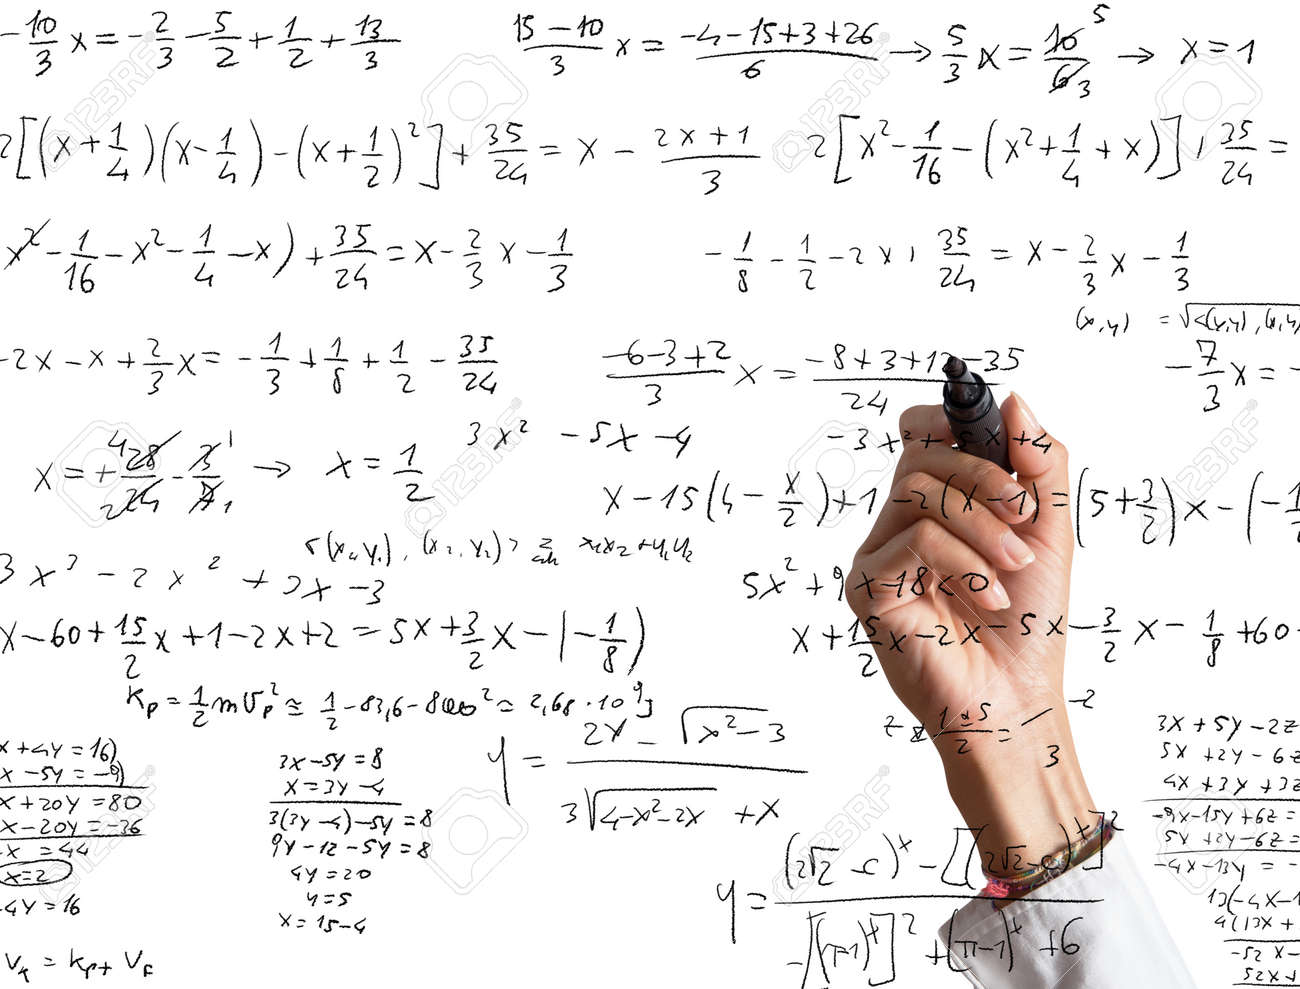 -10/3 x = -2/3 - 5/2 + 1/2 + 13/3
(15-10)/3 x = (-4-15+3+26)/6 → 5/3 x = 10/6 5 3 → x = 1
2[(x+1/4)(x-1/4)-(x+1/2)²]+35/24 = x - (2x+1)/3
2[x²-1/16-(x²+1/4+x)], 35/24 =
x²-1/16-x²-1/4-x)+35/24 = x-2/3 x-1/3
-1/8-1/2-2x, 35/24 = x-2/3 x-1/3
(x,y) = √<(x,y),(x,y)
-2x-x+2/3 x = -1/3+1/8+1/2-35/24
(-6-3+2)/3 x = (-8+3+12-35)/24
-7/3 x = -
x = + 4 28/24 2 - 3/1 → x = 1/2
3x² -5x -4
-3x²+5x+4
x-15(4-x/2)+1-2(x-1)=(5+3/2)x-(-1
(x₂,y₂)> x₁x₂+y₁y₂
3x³-2x²+3x-3
5x²+9x-18<0
x-60+15/2 x+1-2x+2=5x+3/2 x-(-1/8)
x+15/2 x-2x-5x-3/2 x-1/8+60
Kp=1/2 mVp²≅1/2-83,6-800²≈2,68·10⁹J
(1±5)/2 = -2 3
y = (2x-√x²-3)/(3√4-x²-2x + x)
x+4y=16)
x-5y=-9)
x+20y=80
x-20y=-36
-x =44
x=2
4y=16
3x-5y=8
x=3y-4
3(3y-4)-5y=8
9y-12-5y=8
4y=20
y=5
x=15-4
3x+5y-2z
5x+2y-6z
4x+3y+3z
-9x-15y+6z=
5x+2y-6z=
-4x-13y = -
13(-4x-1
4(13x+
-52x-
52x+
y = ((2√2-c)ˣ-[(2√2-c)ˣ]²)/(-[(π-1)ˣ]²+(π-1)ˣ+6)